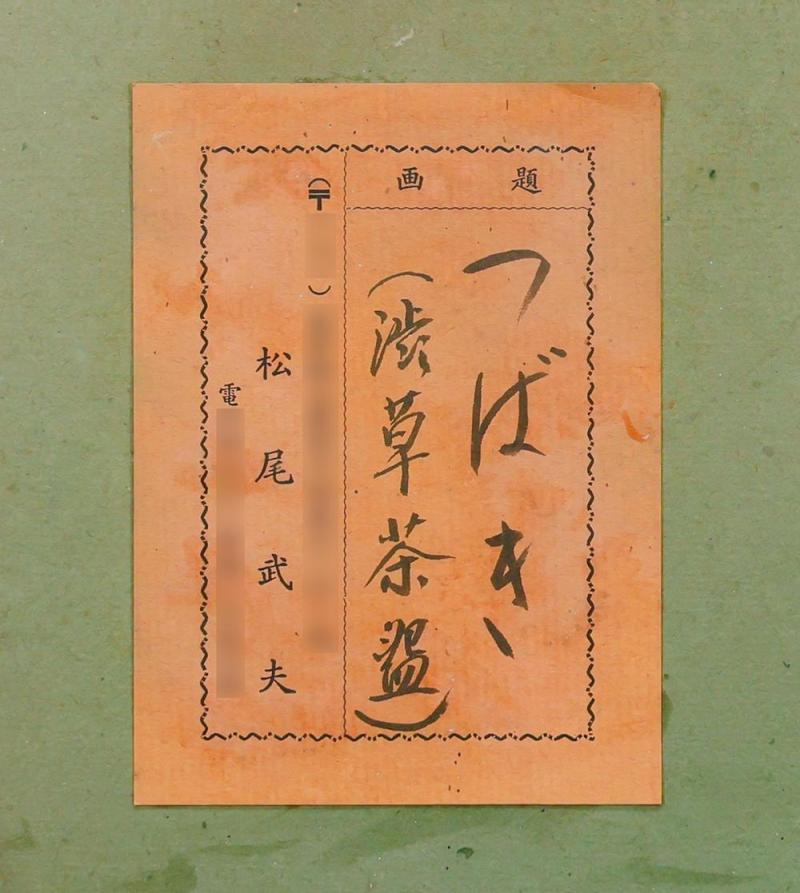 画題
つばき
(渋草茶盌)
(〒 )
松尾武夫
電